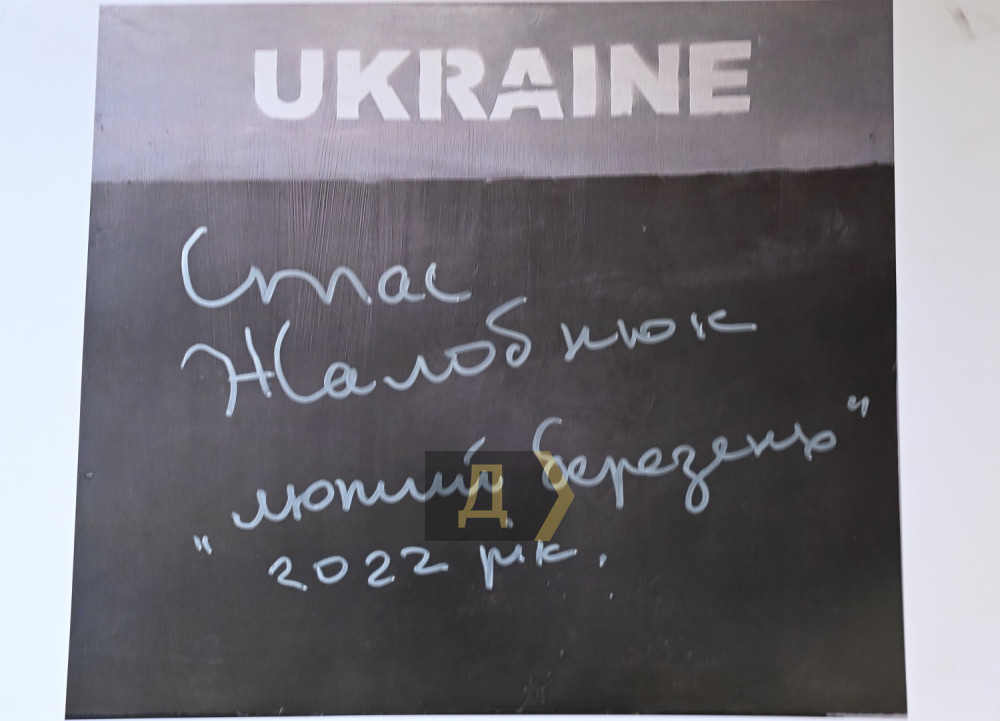 UKRAINE
Стас
Жалобнюк
"лютий березень"
2022 рік.
Д